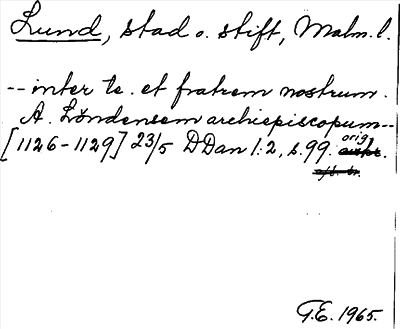 Lund, stad o. stift, Malm. l.
-- inter te . et fratrem nostrum .
A. Lõndensem archiepiscopum --
[1126-1129] 23/5 DDan 1:2, s. 99. orig.
T.E. 1965.